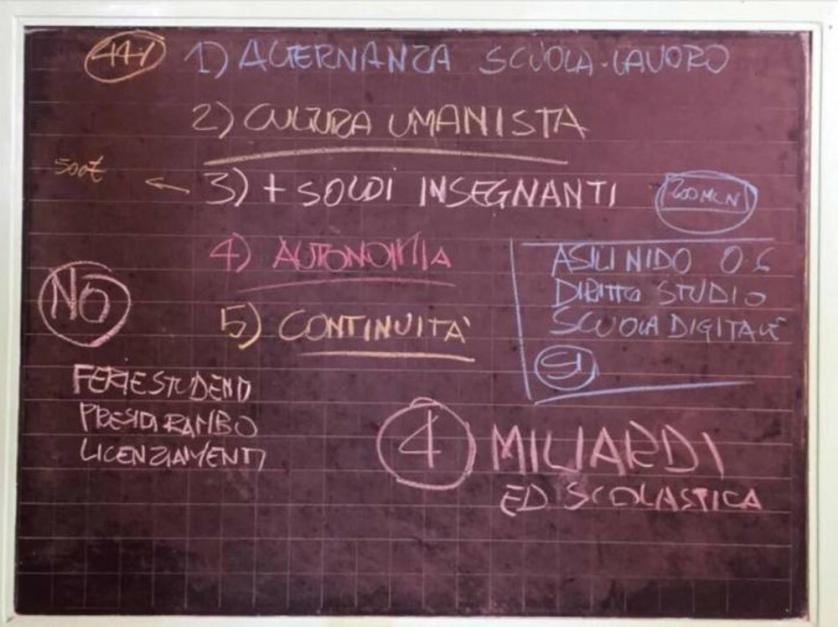 44% 1) ALTERNANZA SCUOLA-LAVORO
2) CULTURA UMANISTA
500€ ← 3) + SOLDI INSEGNANTI 200 MLN
4) AUTONOMIA
5) CONTINUITÀ
ASILI NIDO 0.6
DIRITTO STUDIO
SCUOLA DIGITALE
SI
NO
FERIE STUDENTI
PRESIDI RAMBO
LICENZIAMENTI
4 MILIARDI
ED SCOLASTICA